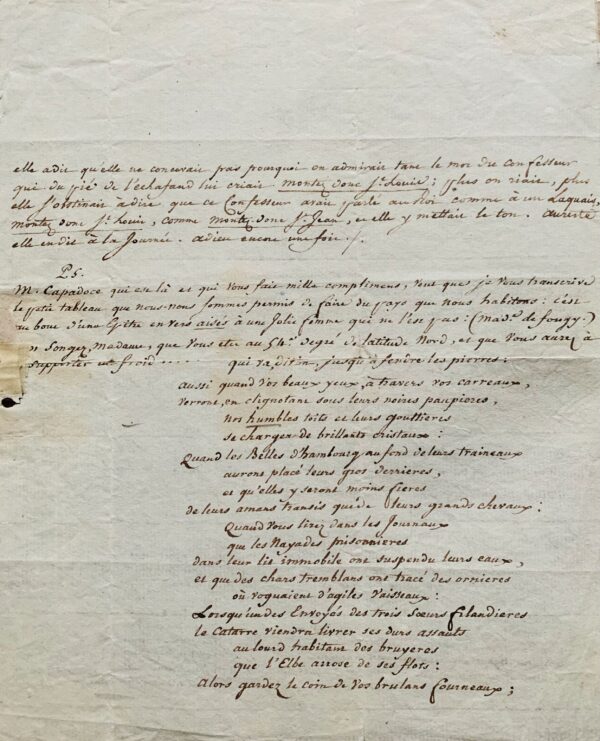 elle a dit qu'elle ne concevait pas pourquoi on admirait tant le mot du confesseur
qui du pié de l'échafaud lui criait montez donc St. Louis; plus on riait, plus
elle s'obstinait à dire que ce Confesseur avait parlé au Roi comme à un Laquais,
montez donc St. Louis, comme montez donc St. Jean, et elle y mettait le ton. au reste
elle en dit à la Journée. adieu encore une fois.
P.S.
M. Capadoce qui est là et qui vous fait mille complimens, veut que je vous transcrive
le petit tableau que nous nous sommes permis de faire du pays que nous habitons: c'est
au bout d'une Epitre en vers aisés à une Jolie femme qui ne l'est pas: (mad.e de fougy.)
" Songez, Madame, que vous ete au 54e. degré de latitude Nord, et que vous aurez à
supporter un froid ....
qui va, dit-on, jusqu'à fendre les pierres:
aussi quand vos beaux yeux, à travers vos carreaux,
verront, en clignotant sous leurs noires paupieres,
nos humbles toits et leurs gouttières
se charger de brillants cristaux:
Quand les Belles d'hambourg au fond de leurs traineaux
auront placé leurs gros derrieres,
et qu'elles y seront moins fieres
de leurs amans transis que de leurs grands chevaux:
Quand vous lirez dans les Journaux
que les Nayades prisonnieres
dans leur lit immobile ont suspendu leurs eaux,
et que des chars tremblans ont tracé des ornieres
où voguaient d'agiles vaisseaux:
Lorsqu'un des Envoyés des trois Sœurs filandieres
le catarre viendra livrer ses durs assauts
au lourd habitant des bruyeres
que l'Elbe arrose de ses flots:
Alors gardez le coin de vos brulans fourneaux;